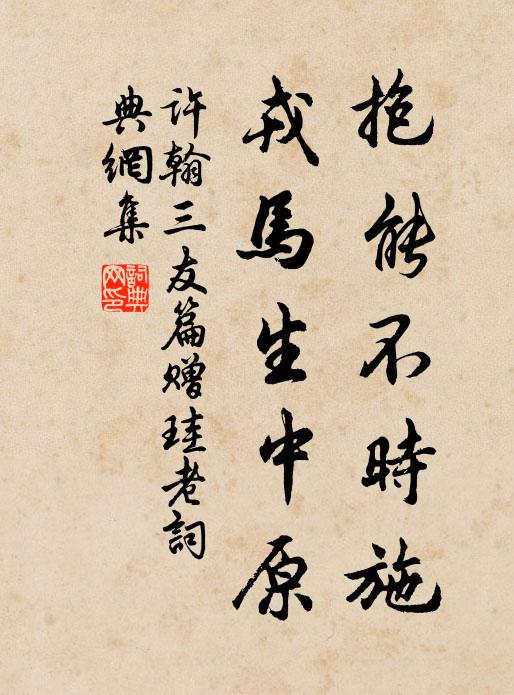 抱能不時施
戎馬生中原
許翰三友篇贈珪老詞
典網集
詞典
网印